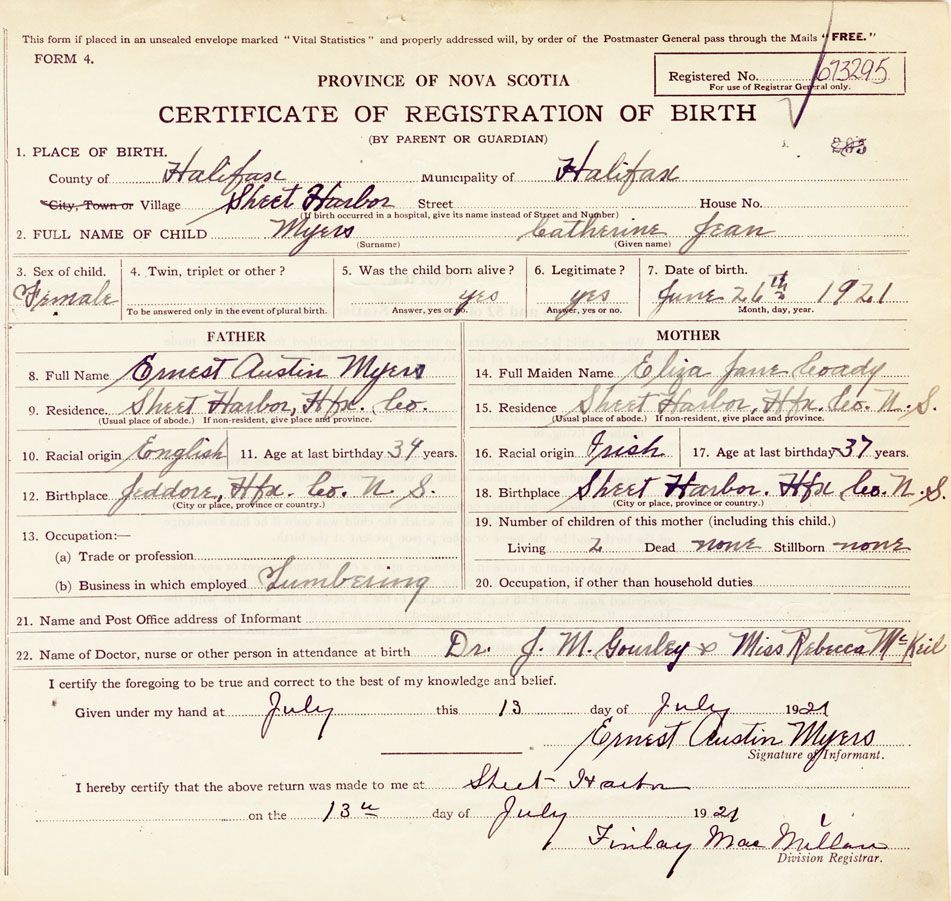 This form if placed in an unsealed envelope marked "Vital Statistics" and properly addressed will, by order of the Postmaster General pass through the Mails "FREE."
FORM 4.
PROVINCE OF NOVA SCOTIA
Registered No. 673295
For use of Registrar General only.
CERTIFICATE OF REGISTRATION OF BIRTH
(BY PARENT OR GUARDIAN)
1. PLACE OF BIRTH.
County of Halifax Municipality of Halifax
City, Town or Village Sheet Harbor Street House No.
(If birth occurred in a hospital, give its name instead of Street and Number)
2. FULL NAME OF CHILD Myers Catherine Jean
(Surname) (Given name)
3. Sex of child. 4. Twin, triplet or other? 5. Was the child born alive? 6. Legitimate? 7. Date of birth.
Female yes yes June 26th 1921
To be answered only in the event of plural birth. Answer, yes or no. Answer, yes or no. Month, day, year.
FATHER MOTHER
8. Full Name Ernest Austin Myers 14. Full Maiden Name Eliza Jane Coady
9. Residence. Sheet Harbor, Hfx. Co. 15. Residence Sheet Harbor, Hfx. Co. N. S.
(Usual place of abode.) If non-resident, give place and province. (Usual place of abode.) If non-resident, give place and province.
10. Racial origin English 11. Age at last birthday 34 years. 16. Racial origin Irish 17. Age at last birthday 37 years.
12. Birthplace Jeddore, Hfx. Co. N. S. 18. Birthplace Sheet Harbor. Hfx Co. N. S
(City or place, province or country.) (City or place, province or country.)
13. Occupation:— 19. Number of children of this mother (including this child.)
(a) Trade or profession Living 2 Dead none Stillborn none
(b) Business in which employed Lumbering 20. Occupation, if other than household duties
21. Name and Post Office address of Informant
22. Name of Doctor, nurse or other person in attendance at birth Dr. J. M. Gourley & Miss Rebecca McKeil
I certify the foregoing to be true and correct to the best of my knowledge and belief.
Given under my hand at July this 13 day of July 1921
Ernest Austin Myers
Signature of Informant.
I hereby certify that the above return was made to me at Sheet Harbor
on the 13th day of July 1921
Finlay MacMillan
Division Registrar.